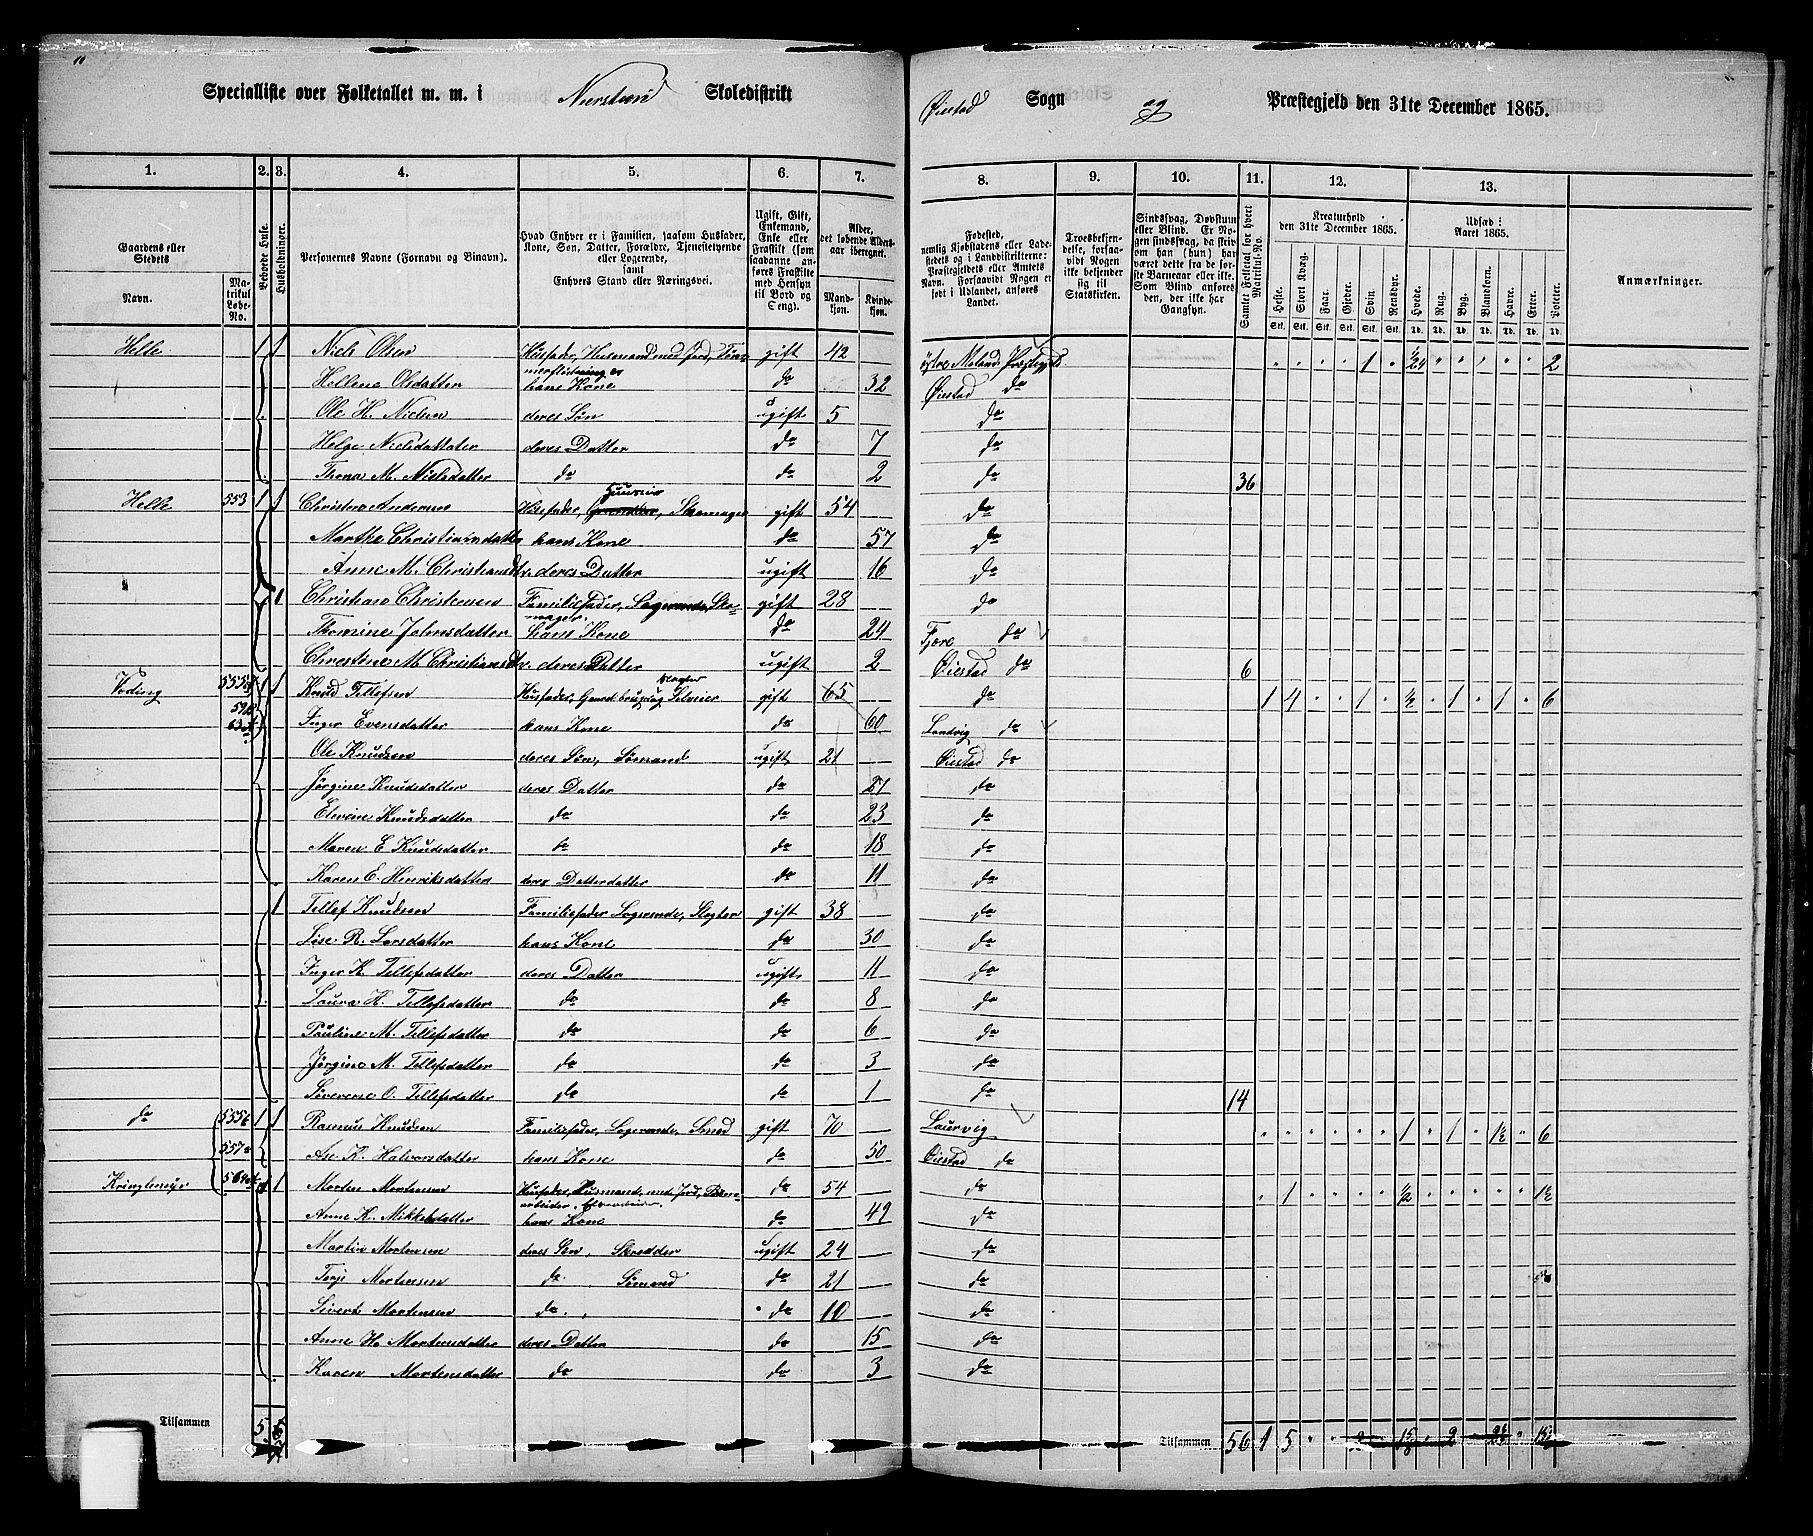 10
Specialliste over Folketallet m. m. i Nærstrøm Skoledistrikt Øiestad Sogn og Præstegjeld den 31te December 1865.
1. 2. 3. 4. 5. 6. 7. 8. 9. 10. 11. 12. 13.
Gaardens eller Stedets
Navn.
Matrikul Løbe-No.
Beboede Huse.
Husholdninger.
Personernes Navne (Fornavn og Binavn).
Hvad Enhver er i Familien, saasom Husfader, Kone, Søn, Datter, Forældre, Tjenestetyende eller Logerende, samt Enhvers Stand eller Næringsvei.
Ugift, Gift, Enkemand, Enke eller Fraskilt (som saadanne anføres Fraskilte med Hensyn til Bord og Seng).
Alder, det løbende Alders-aar iberegnet.
Mandkjøn.
Kvindekjøn.
Fødested, nemlig Kjøbstadens eller Ladestedets og i Landdistrikterne: Præstegjeldets eller Amtets Navn. Forsaavidt Nogen er født i Udlandet, anføres Landet.
Troesbekjendelse, forsaavidt Nogen ikke bekjender sig til Statskirken.
Sindssvag, Døvstum eller Blind. Er Nogen sindssvag, da skriv om han (hun) har været dette fra de første Barneaar eller ikke. Som Blind anføres den, der ikke har Gangsyn.
Samlet Folketal for hvert Matrikul-No.
Kreaturhold den 31te December 1865.
Heste. Stort Kvæg. Faar. Gjeder. Svin. Rensdyr.
Udsæd i Aaret 1865.
Hvede. Rug. Byg. Blandkorn. Havre. Erter. Poteter.
Anmærkninger.
Helle 1 1 Niels Olsen Husfader, Husmand med Jord, gift 42 østre Moland Præstegjeld 1 1/24 2
Hellene Olsdatter hans Kone do 32 Øiestad do
Ole H. Nielsen deres Søn ugift 5 do
Helge Nielsdattater deres Datter do 7 do
Thona M. Nielsdatter do do 2 do 36
Helle 553 1 1 Christen Andersen Husfader, Skomager gift 54 do
Marthe Christiansdatter hans Kone do 57 do
Anne M. Christiansdtr. deres Datter ugift 16 do
1 Christian Christensen Familiefader, Logerende, Skomager. gift 28 do
Thomine Johnsdatter hans Kone do 24 Fjære do
Chrestine M. Christiansdtr. deres Datter ugift 2 Øiestad do 6
Voding 1 1 Knud Tellefsen Husfader, Gaardbruger og Selveier gift 65 do 1 4 1 1/2 1 1 6
Inger Evensdatter hans Kone do 60 Landvig do
Ole Knudsen deres Søn, Sømand ugift 21 Øiestad do
Jørgine Knudsdatter deres Datter do 27 do
Elevine Knudsdatter do do 23 do
Maren E Knudsdatter do do 18 do
Karen C. Henriksdatter deres Datterdatter do 11 do
1 Tellef Knudsen Familiefader Logerende, Slagter gift 38 do
Lise R. Larsdatter hans Kone do 30 do
Inger K. Tellefsdatter deres Datter ugift 11 do
Laura H. Tellefsdatter do do 8 do
Pauline M. Tellefsdatter do do 6 do
Jørgine M. Tellefsdatter do do 3 do
Severene O. Tellefsdatter do do 1 do 14
do 555b 1 1 Rasmus Knudsen Familiefader, Logerende, Smed gift 70 Laurvig 1 1 1½ 6
557a Ase K. Halvorsdatter hans Kone do 50 Øiestad do
Kringlemyr 1 Morten Mortensen Husfader, Husmand med Jord, do 54 do 1 1/2 1½
Anne K. Mikkelsdatter hans Kone do 49 do
Martin Mortensen deres Søn, Skredder ugift 24 do
Terje Mortensen do. , Sømand do 21 do
Sivert Mortensen do. , do 10 do
Anne H. Mortensdatter deres Datter do 15 do
Karen Mortensdatter do do 3 do
Tilsammen 5 Tilsammen 56 1 5 2 2